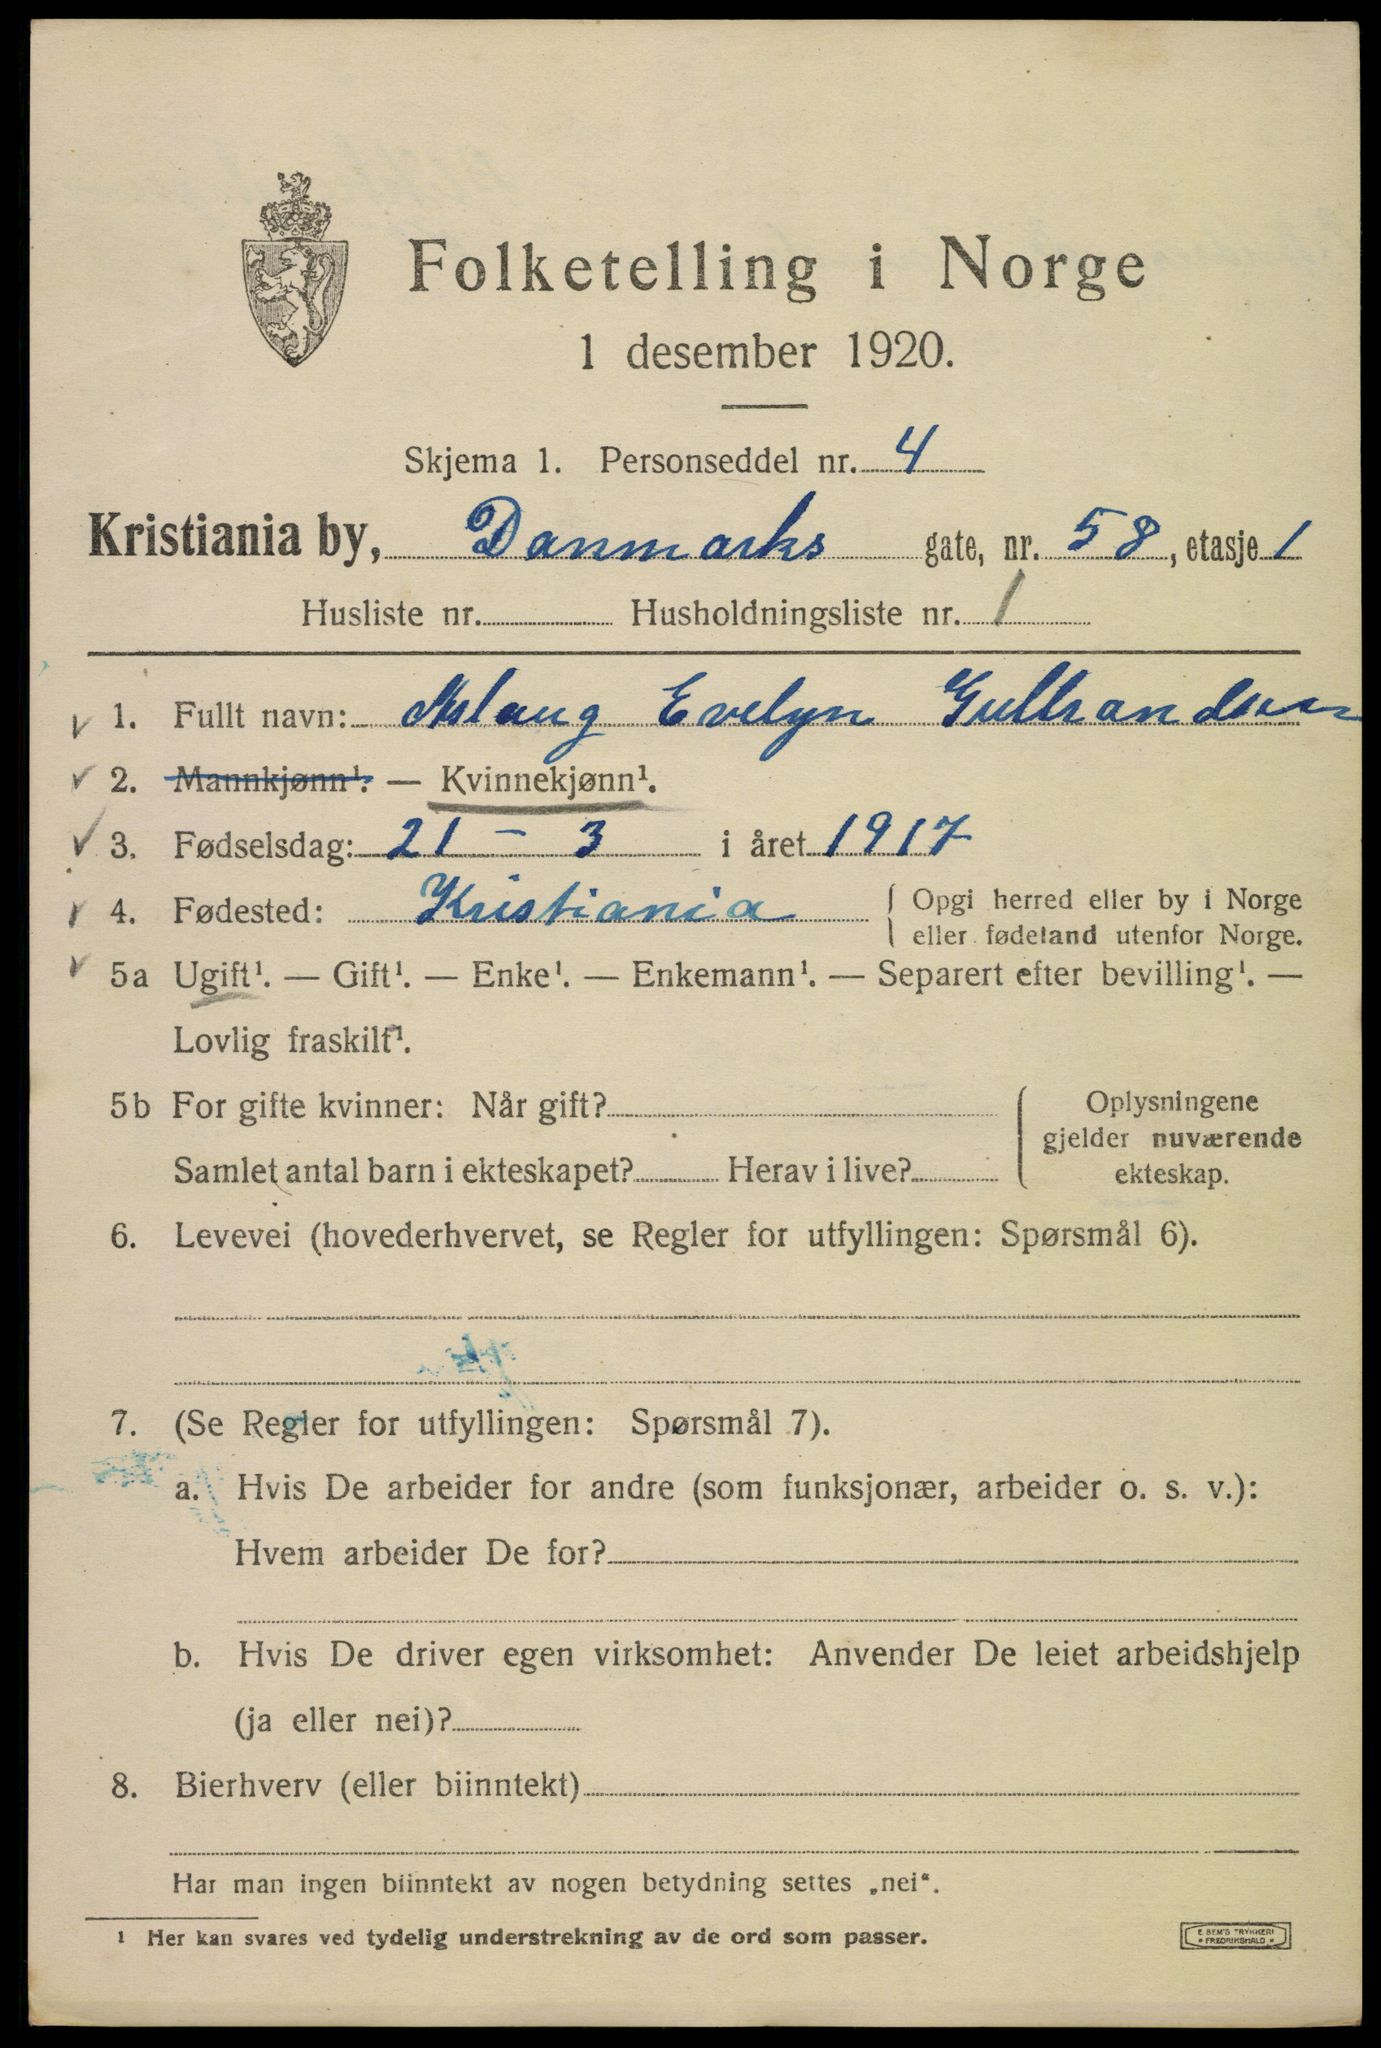 Folketelling i Norge
1 desember 1920.
Skjema 1. Personseddel nr. 4
Kristiania by, Danmarks gate, nr. 58, etasje 1
Husliste nr. Husholdningsliste nr. 1
1. Fullt navn: Aslaug Evelyn Gulbrandsen
2. Mannkjønn¹. — Kvinnekjønn¹.
3. Fødselsdag: 21 – 3 i året 1917
4. Fødested: Kristiania { Opgi herred eller by i Norge
eller fødeland utenfor Norge.
5a Ugift¹. — Gift¹. — Enke¹. — Enkemann¹. — Separert efter bevilling¹. —
Lovlig fraskilt¹.
5b For gifte kvinner: Når gift? { Oplysningene
gjelder nuværende
Samlet antal barn i ekteskapet? Herav i live? ekteskap.
6. Levevei (hovederhvervet, se Regler for utfyllingen: Spørsmål 6).
7. (Se Regler for utfyllingen: Spørsmål 7).
a. Hvis De arbeider for andre (som funksjonær, arbeider o. s. v.):
Hvem arbeider De for?
b. Hvis De driver egen virksomhet: Anvender De leiet arbeidshjelp
(ja eller nei)?
8. Bierhverv (eller biinntekt)
Har man ingen biinntekt av nogen betydning settes „nei“.
1 Her kan svares ved tydelig understrekning av de ord som passer.
E. SEM'S TRYKKERI
• FREDRIKSHALD •